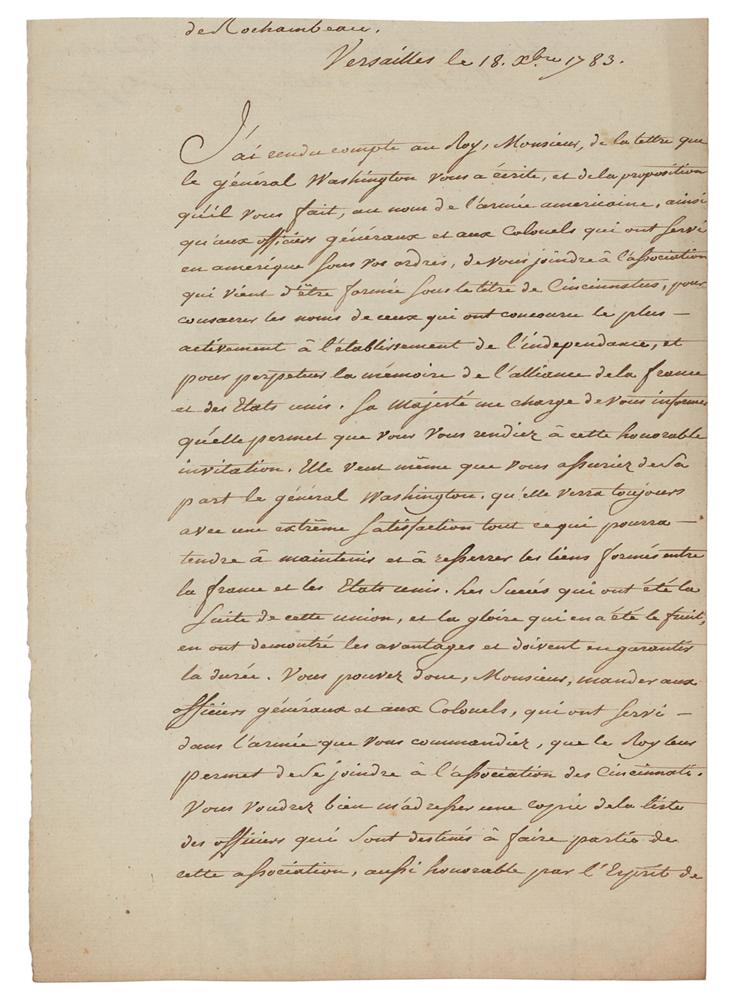 de Rochambeau.
Versailles le 18. Xbre 1783.
J'ai rendu compte au Roy, Monsieur, de la lettre que
le général Washington vous a écrite, et de la proposition
qu'il vous fait, au nom de l'armée americaine, ainsi
qu'aux officiers généraux et aux Colonels qui ont servi
en amerique sous vos ordres, de vous joindre à l'association
qui vient d'être formée sous le titre de Cincinnatus, pour
consacrer les noms de ceux qui ont concouru le plus –
activement à l'établissement de l'indépendance, et
pour perpetuer la mémoire de l'alliance de la france
et des Etats unis. Sa Majesté me charge de vous informer
qu'elle permet que vous vous rendiez à cette honorable
invitation. Elle veut même que vous assuriez de Sa
part le général Washington. qu'elle verra toujours
avec une extrême satisfaction tout ce qui pourra –
tendre à maintenir et à resserrer les liens formés entre
la france et les Etats unis. Les Succés qui ont été la
Suite de cette union, et la gloire qui en a été le fruit,
en ont demontré les avantages et doivent en garantir
la durée. Vous pouvez donc, Monsieur, mander aux
officiers généraux et aux Colonels, qui ont servi –
dans l'armée que vous commandiez, que le Roy leur
permet de Se joindre à l'association des Cincinnati.
Vous voudrez bien m'adresser une copie de la liste
des officiers qui Sont destinés à faire partie de
cette association, aussi honorable par l'Esprit de